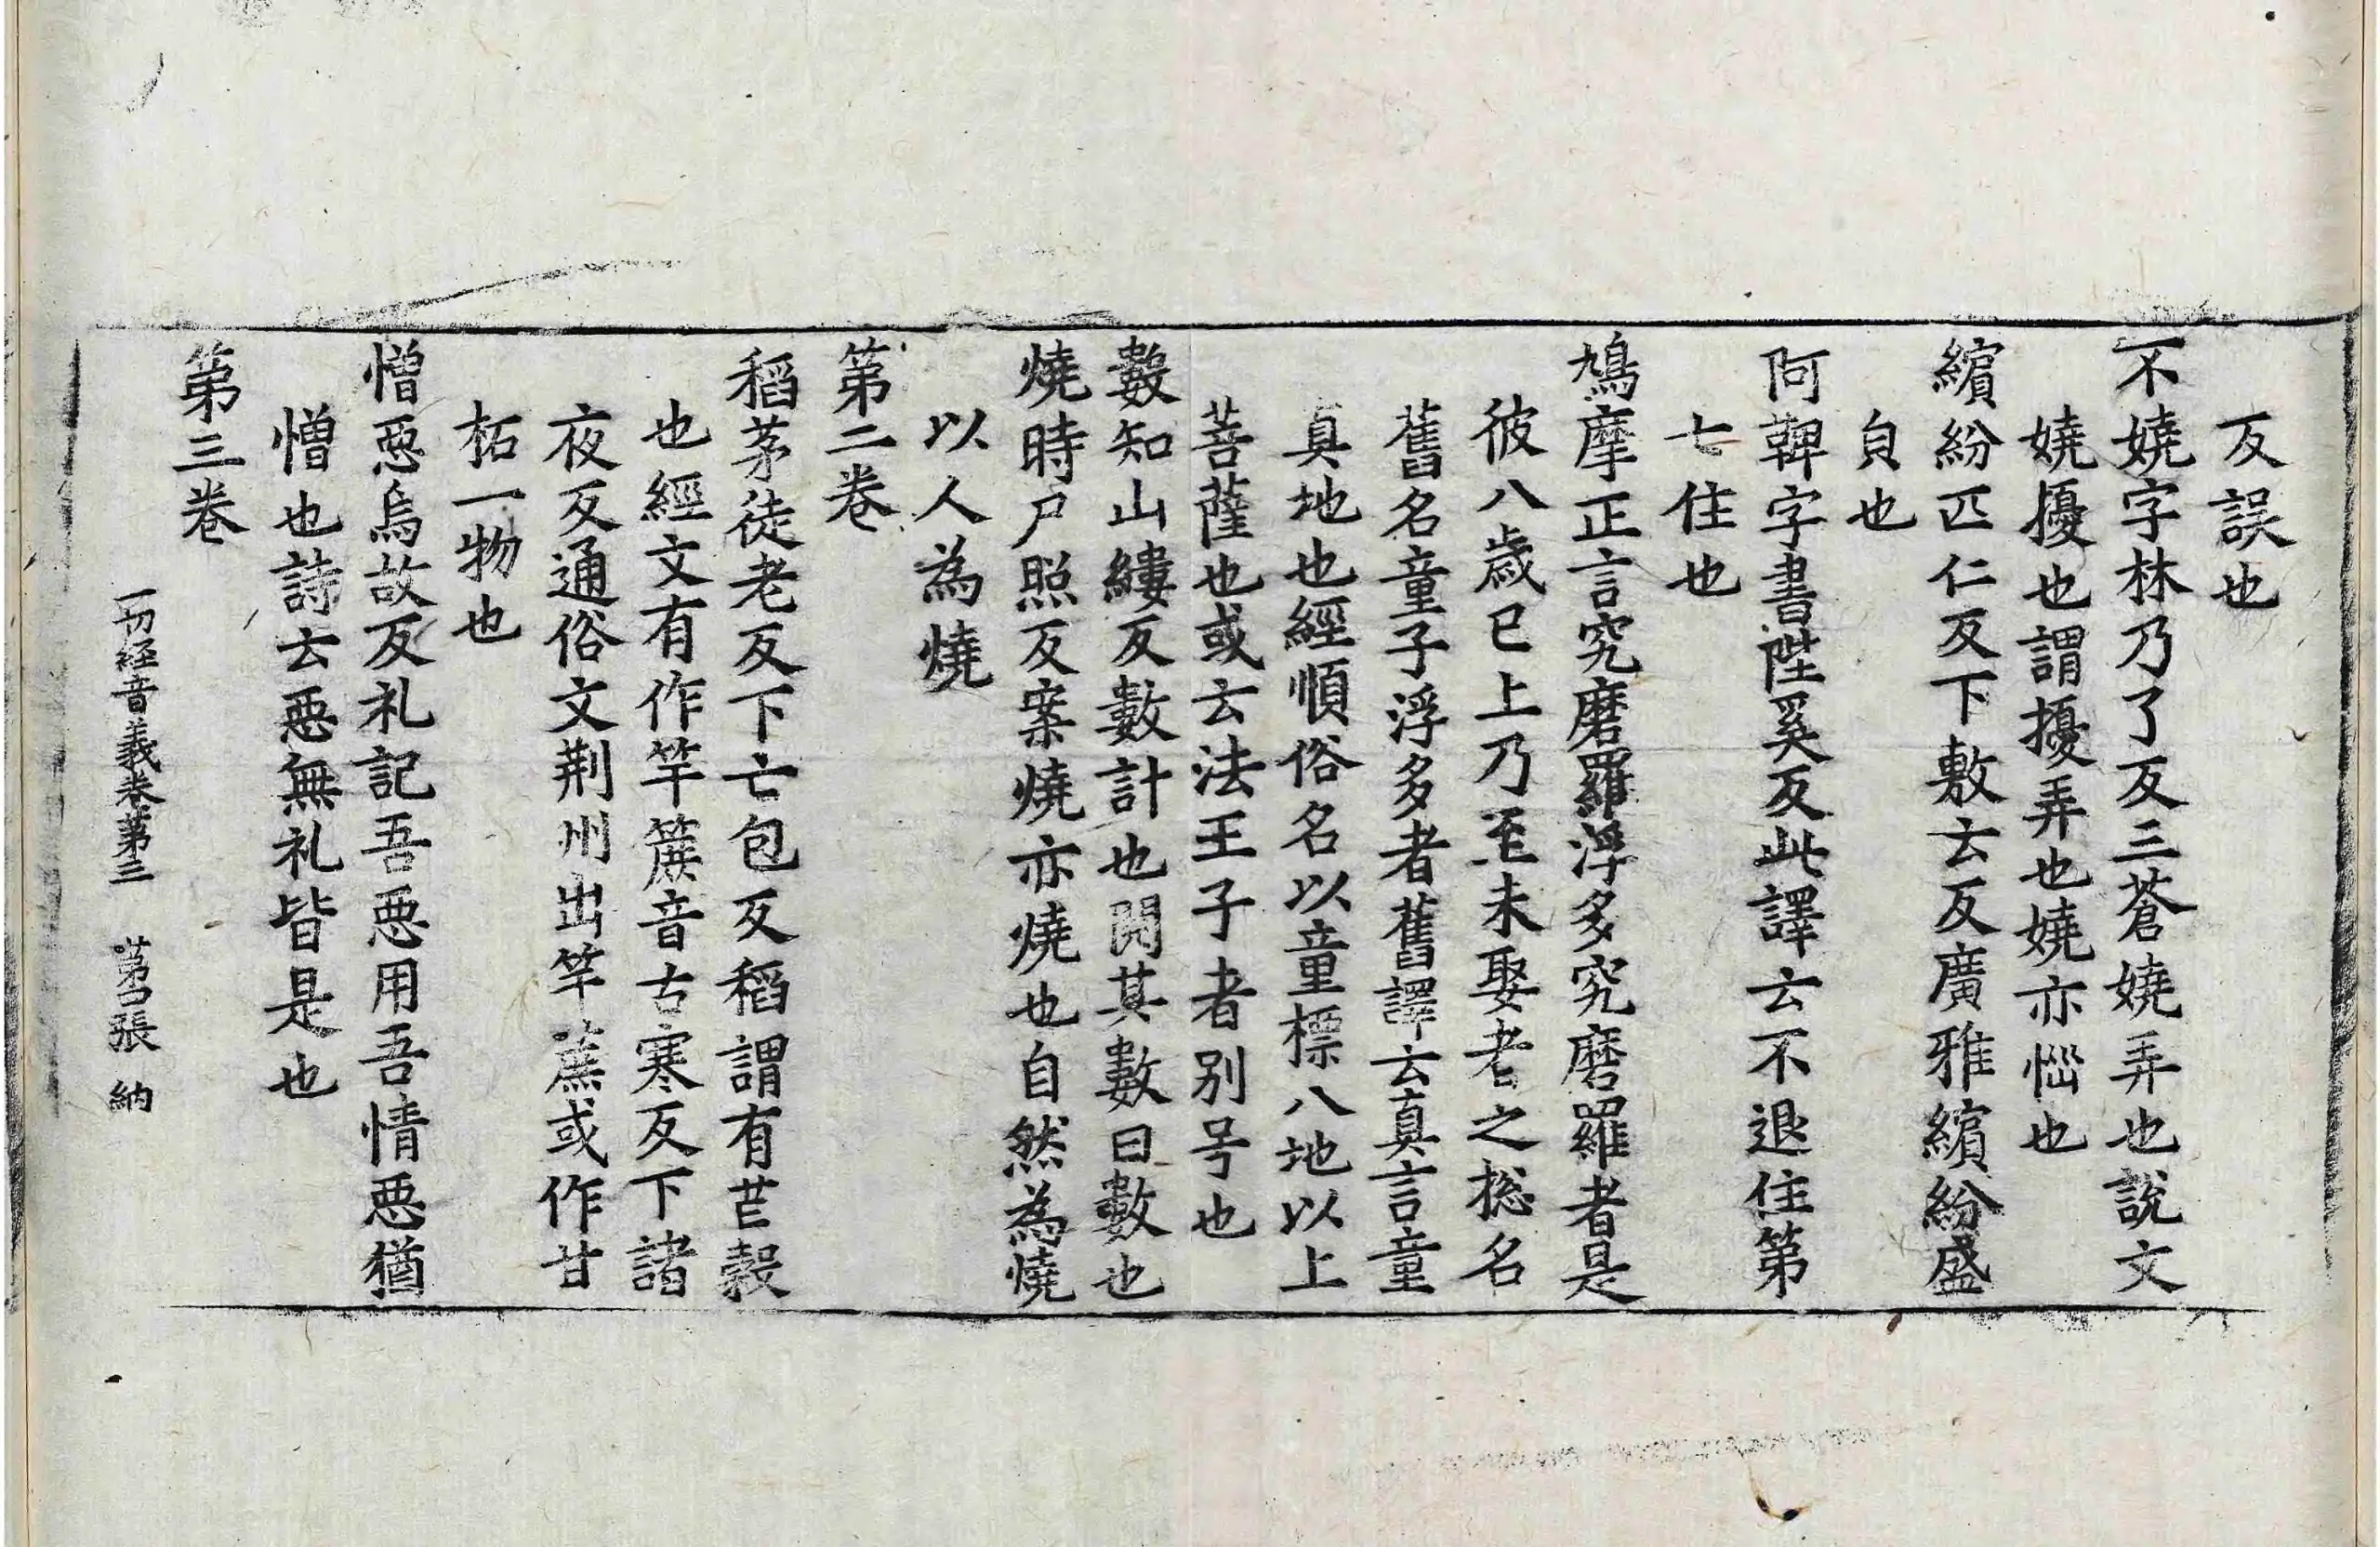 反誤也
不嬈字林乃了反三蒼嬈弄也說文
嬈擾也謂擾弄也嬈亦惱也
繽紛匹仁反下敷云反廣雅繽紛盛
皃也
阿鞞字書陛奚反此譯云不退住第
七住也
鳩摩正言究磨羅浮多究磨羅者是
彼八歲已上乃至未娶者之揔名
舊名童子浮多者舊譯云真言童
真地也經順俗名以童標八地以上
菩薩也或云法王子者別号也
數知山縷反數計也閱其數曰數也
燒時尸照反案燒亦燒也自然為燒
以人為燒
第二卷
稻茅徒老反下亡包反稻謂有芒穀
也經文有作竿簇音古寒反下諸
夜反通俗文荆州出竿蔗或作甘
柘一物也
憎惡烏故反礼記吾惡用吾情惡猶
憎也詩云惡無礼皆是也
第三卷
一切經音義卷第三 張 納